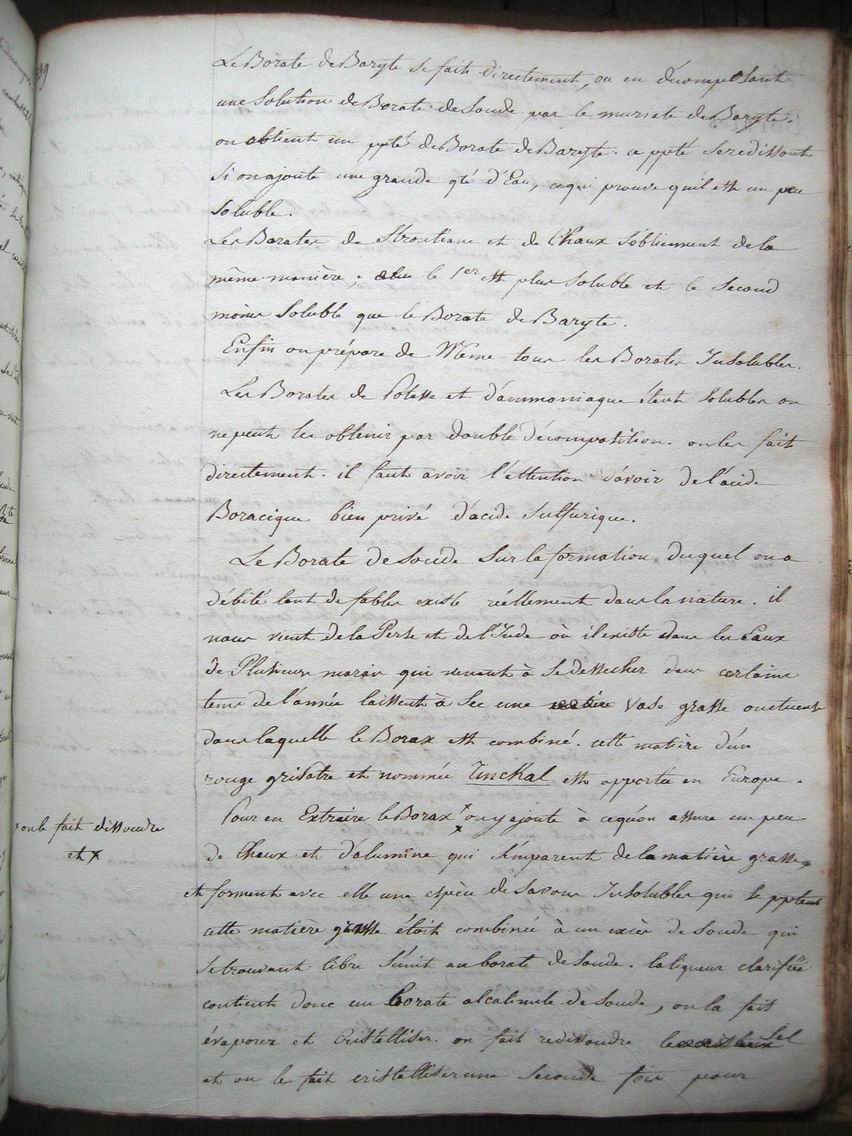 Le Borate de Baryte se fait directement, ou en décomposant
une Solution de Borate de Soude par le muriate de Baryte.
on obtient un ppté de Borate de Baryte. ce ppté se redissout
Si on ajoute une grande qté d'Eau, ce qui prouve qu'il est un peu
Soluble.
Les Borates de Strontiane et de Chaux s'obtiennent de la
même manière; le 1er est plus soluble et le Second
moins Soluble que le Borate de Baryte.
Enfin on prépare de Même tous les Borates Insolubles.
Les Borates de Potasse et d'ammoniaque étant solubles on
ne peut les obtenir par double décomposition. on les fait
directement. il faut avoir l'attention d'avoir de l'acide
Boracique bien privé d'acide Sulfurique.
Le Borate de Soude Sur la formation duquel on a
débité tant de fables existe réellement dans la nature. il
nous vient de la Perse et de l'Inde où il existe dans les Eaux
de Plusieurs marais qui venant à Se dessécher dans certains
tems de l'année laissent à Sec une vase grasse onctueuse
dans laquelle le Borax est combiné. cette matière d'un
rouge grisâtre et nommée Tinckal est apportée en Europe.
Pour en Extraire le Borax x on y ajoute à ce qu'on assure un peu
x on le fait dissoudre
et x
de Chaux et d'alumine qui s'emparent de la matière grasse,
et forment avec elle une espèce de Savons Insolubles qui se pptent
cette matière grasse étoit combinée à un excès de Soude qui
se trouvant libre S'unit au borate de Soude. la liqueur clarifiée
contient donc un Borate alcalinule de Soude, on la fait
évaporer et Cristalliser. on fait redissoudre le Sel
et on le fait cristalliser une seconde fois pour